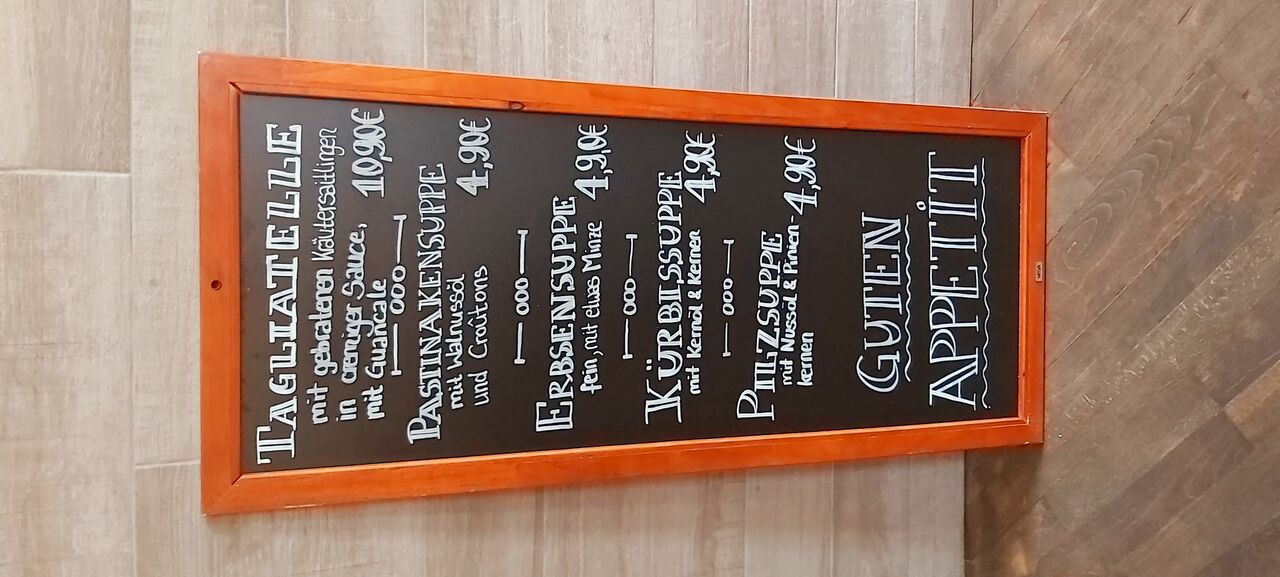 TAGLIATELLE
mit gebratenen Kräutersaitlingen
in cremiger Sauce,
mit Guancale 10,90€
000
PASTINAKENSUPPE
mit Walnussöl
und Croûtons 4,90€
000
ERBSENSUPPE
fein, mit etwas Minze 4,90€
000
KÜRBISSUPPE
mit Kernöl & Kernen 4,90€
000
PILZSUPPE
mit Nussöl & Pinien-
kernen 4,90€
GUTEN
APPETIT